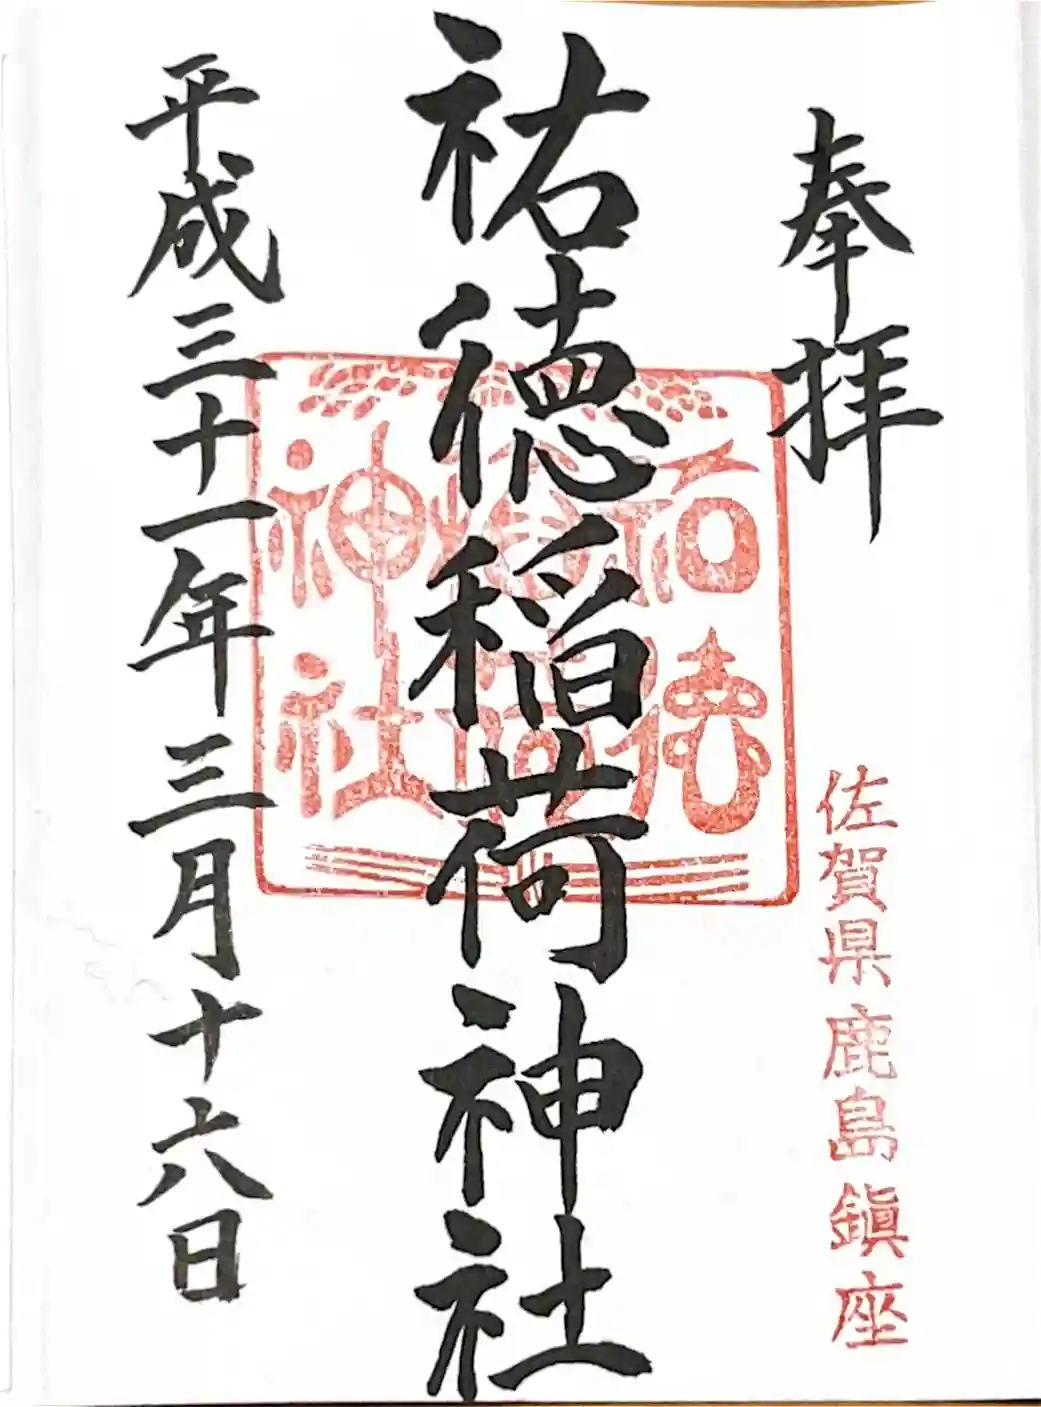 奉拝
佐賀県鹿島鎮座
祐徳稲荷神社
祐徳
稲荷
神社
平成三十一年三月十六日